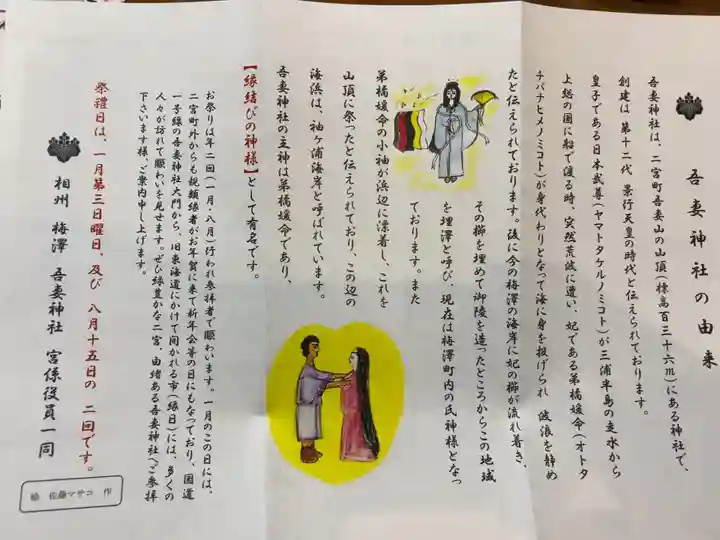 吾妻神社の由来
吾妻神社は、二宮町吾妻山の山頂(標高百三十六m)にある神社で、
創建は、第十二代 景行天皇の時代と伝えられております。
皇子である日本武尊(ヤマトタケルノミコト)が三浦半島の走水から
上総の国に船で渡る時、突然荒波に遭い、妃である弟橘媛命(オトタ
チバナヒメノミコト)が身代わりとなって海に身を投げられ 波浪を静め
たど伝えられております。後に今の梅澤の海岸に妃の櫛が流れ着き、
その櫛を埋めて御陵を造ったところからこの地域
を埋澤と呼び、現在は梅澤町内の氏神様となっ
ております。また
弟橘媛命の小袖が浜辺に漂着し、これを
山頂に祭ったと伝えられており、この辺の
海浜は、袖ヶ浦海岸と呼ばれています。
吾妻神社の主神は弟橘媛命であり、
【縁結びの神様】として有名です。
お祭りは年二回(一月・八月)行われ参拝者で賑わいます。一月のこの日には、
二宮町外からも親類縁者がお年賀に来て新年会等の日にもなっており、国道
一号線の吾妻神社大門から、旧東海道にかけて開かれる市(縁日)には、多くの
人々が訪れて賑わいを見せます。ぜひ緑豊かな二宮、由緒ある吾妻神社へご参拝
下さいます様、ご案内申し上げます。
祭禮日は、一月第三日曜日、及び 八月十五日の 二回です。
相州 梅澤 吾妻神社 宮係役員一同
絵 佐藤マサコ 作